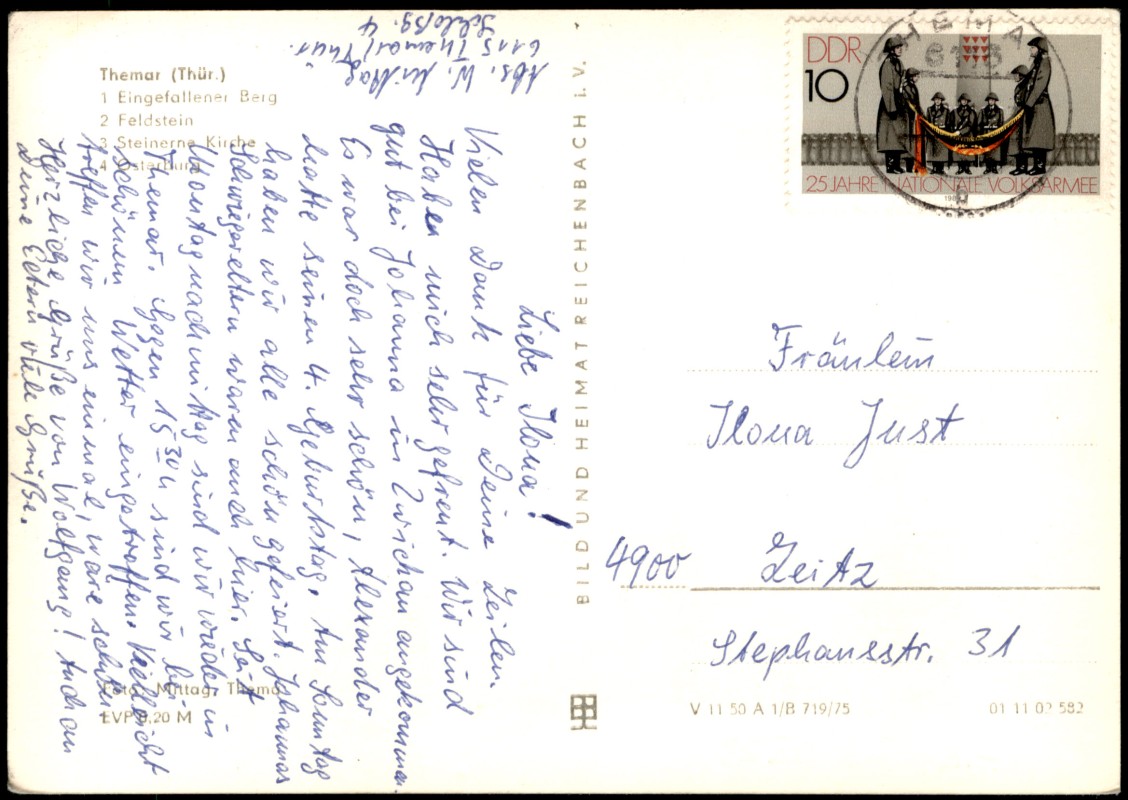 Themar (Thür.)
1 Eingefallener Berg
2 Feldstein
3 Steinerne Kirche
4 Osterburg
Foto: Mittag, Themar
EVP 0,20 M
Abs. W. Mittag
6115 Themar/Thür.
Schloßg. 4
Liebe Ilona!
Vielen Dank für Deine Zeilen.
Haben mich sehr gefreut. Wir sind
gut bei Johanna in Zwickau angekommen.
Es war doch sehr schön, Alexander
hatte seinen 4. Geburtstag. Am Sonntag
haben wir alle schön gefeiert. Johannas
Schwiegereltern waren auch hier. Seit
Montagnachmittag sind wir wieder in
Themar. Gegen 15 30 h sind wir bei
schönem Wetter eingetroffen. Vielleicht
treffen wir uns einmal, wäre schön.
Herzliche Grüße von Wolfgang! Auch an
Deine Eltern viele Grüße.
BILD UND HEIMAT REICHENBACH I. V.
DDR
10
25 JAHRE NATIONALE VOLKSARMEE
THEMAR
6115
Fräulein
Ilona Just
4900 Zeitz
Stephansstr. 31
V 11 50 A 1/B 719/75
01 11 02 582